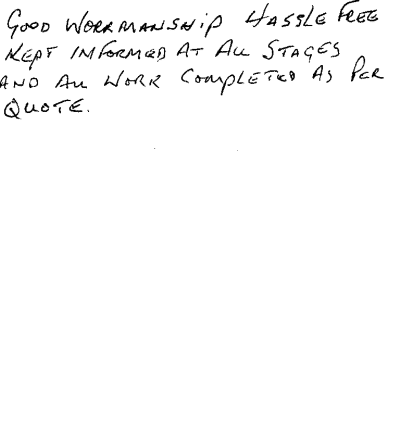 GOOD WORKMANSHIP HASSLE FREE
KEPT INFORMED AT ALL STAGES
AND ALL WORK COMPLETED AS PER
QUOTE.